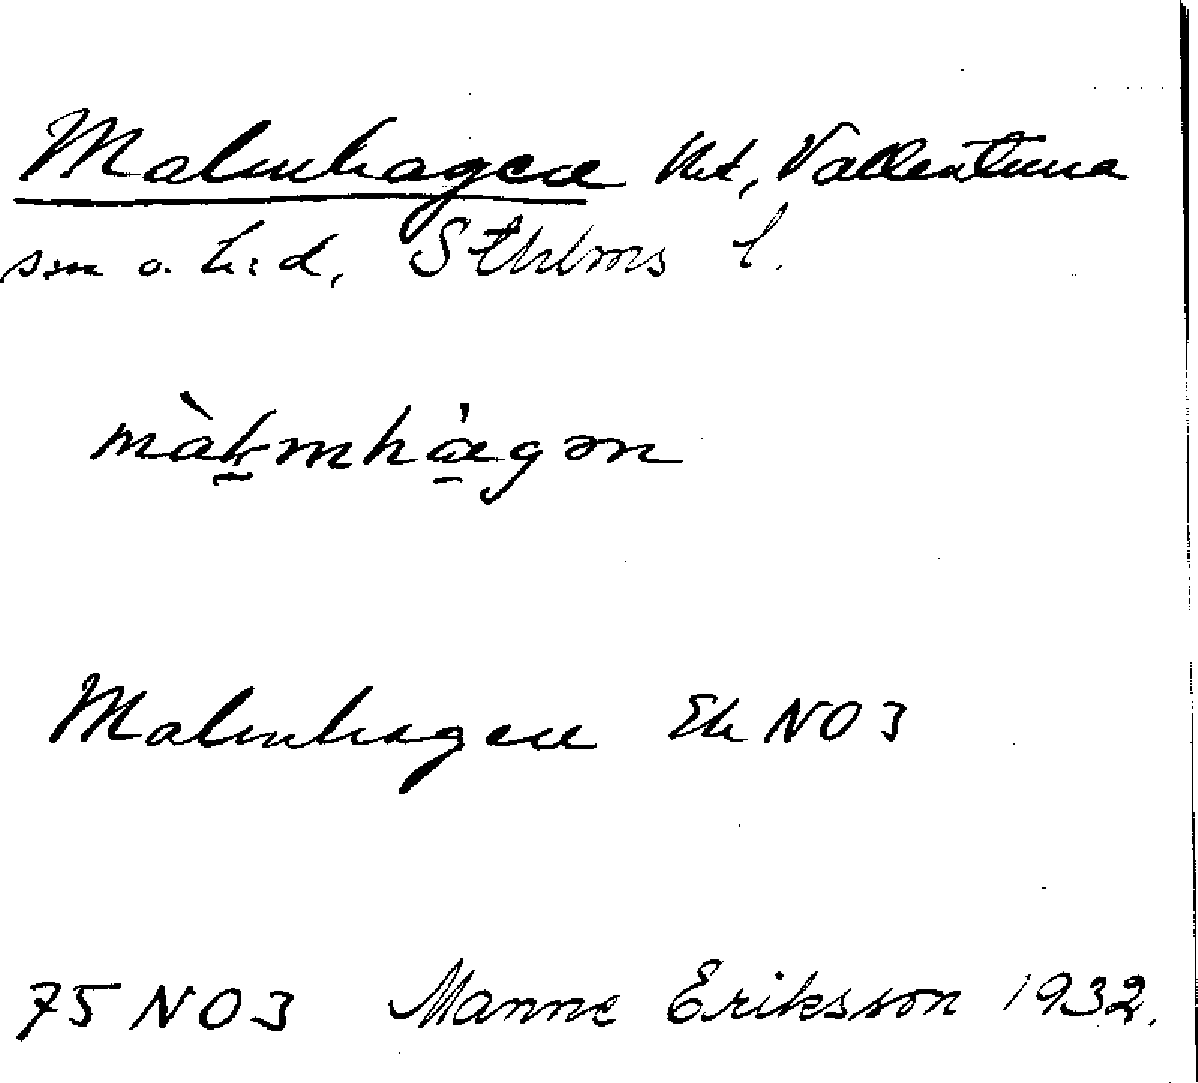 Malmhagen Ut, Vallentuna
sn o. h:d, Sthlms l.
màłmhàgən
Malmhagen Ek NO3
75 NO3 Manne Eriksson 1932.